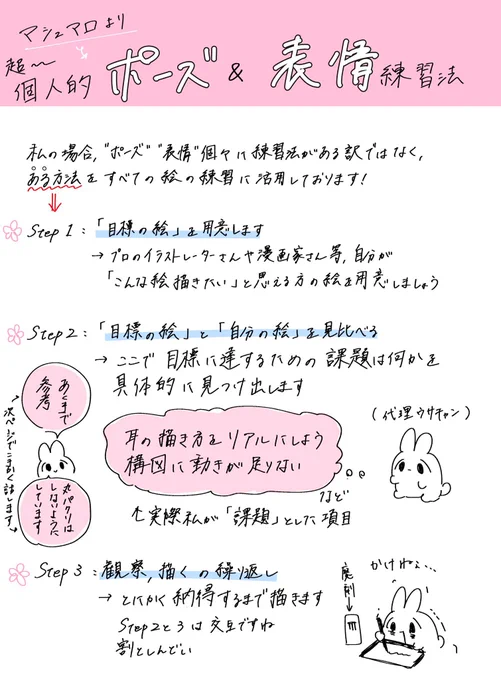 マシュマロより
超〜
個人的 ポーズ & 表情 練習法
私の場合、"ポーズ" "表情" 個々に練習法がある訳ではなく、
ある方法をすべての絵の練習に活用しております!
Step 1 : 「目標の絵」を用意します
→ プロのイラストレーターさんや漫画家さん等、自分が
「こんな絵描きたい」と思える方の絵を用意しましょう
Step 2 : 「目標の絵」と「自分の絵」を見比べる
→ ここで目標に達するための課題は何かを
具体的に見つけ出します
あくまで
参考
丸パクリは
しないように
しています
←次ページでこまかく話します→
耳の描き方をリアルにしよう
構図に動きが足りない
など
(代理ウサキャン)
↑実際私が「課題」とした項目
Step 3 : 観察、描くの繰り返し
→ とにかく納得するまで描きます
Step2と3は交互ですね
割としんどい
魔剤
かけねぇ…